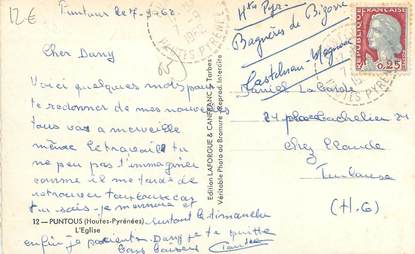 12€
Puntous le 7-3-62
Hte Pyr
Bagnères de Bigorre
Castelnau-Magnoac
HTES PYRÉNÉES
0,25
65
Cher Dany
Voici quelques mots pour
te redonner de mes nouvelles
tous va a merveille
même le travail tu
ne peu pas t'immaginer
comme il me tarde de
retrouver Toulouse car
tu sais je m'ennuie et
surtout le dimanche
enfin je patiente Dany je te quitte
Bons Baisers
12 — PUNTOUS (Hautes-Pyrénées)
L'Eglise
Edition LAFORGUE & CANFRANC, Tarbes
Véritable Photo au Bromure - Reprod. Interdite
Daniel Labarde
24 place Bachelier 24
chez Claude
Toulouse
(H.G)